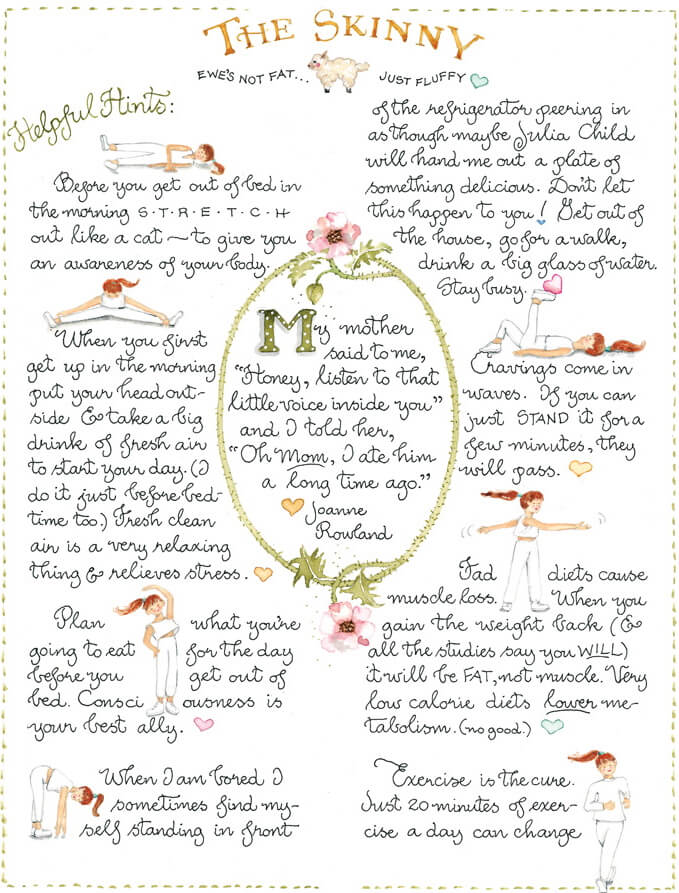 THE SKINNY
EWE'S NOT FAT... JUST FLUFFY
Helpful Hints:
Before you get out of bed in
the morning S·T·R·E·T·C·H
out like a cat — to give you
an awareness of your body.
When you first
get up in the morning
put your head out-
side & take a big
drink of fresh air
to start your day. (I
do it just before bed-
time too.) Fresh clean
air is a very relaxing
thing & relieves stress.
Plan what you're
going to eat for the day
before you get out of
bed. Consciousness is
your best ally.
When I am bored I
sometimes find my-
self standing in front
My mother
said to me,
"Honey, listen to that
little voice inside you"
and I told her,
"Oh Mom, I ate him
a long time ago."
Joanne
Rowland
of the refrigerator peering in
as though maybe Julia Child
will hand me out a plate of
something delicious. Don't let
this happen to you! Get out of
the house, go for a walk,
drink a big glass of water.
Stay busy.
Cravings come in
waves. If you can
just STAND it for a
few minutes, they
will pass.
Fad diets cause
muscle loss. When you
gain the weight back (&
all the studies say you WILL)
it will be FAT, not muscle. Very
low calorie diets lower me-
tabolism. (no good.)
Exercise is the cure.
Just 20 minutes of exer-
cise a day can change